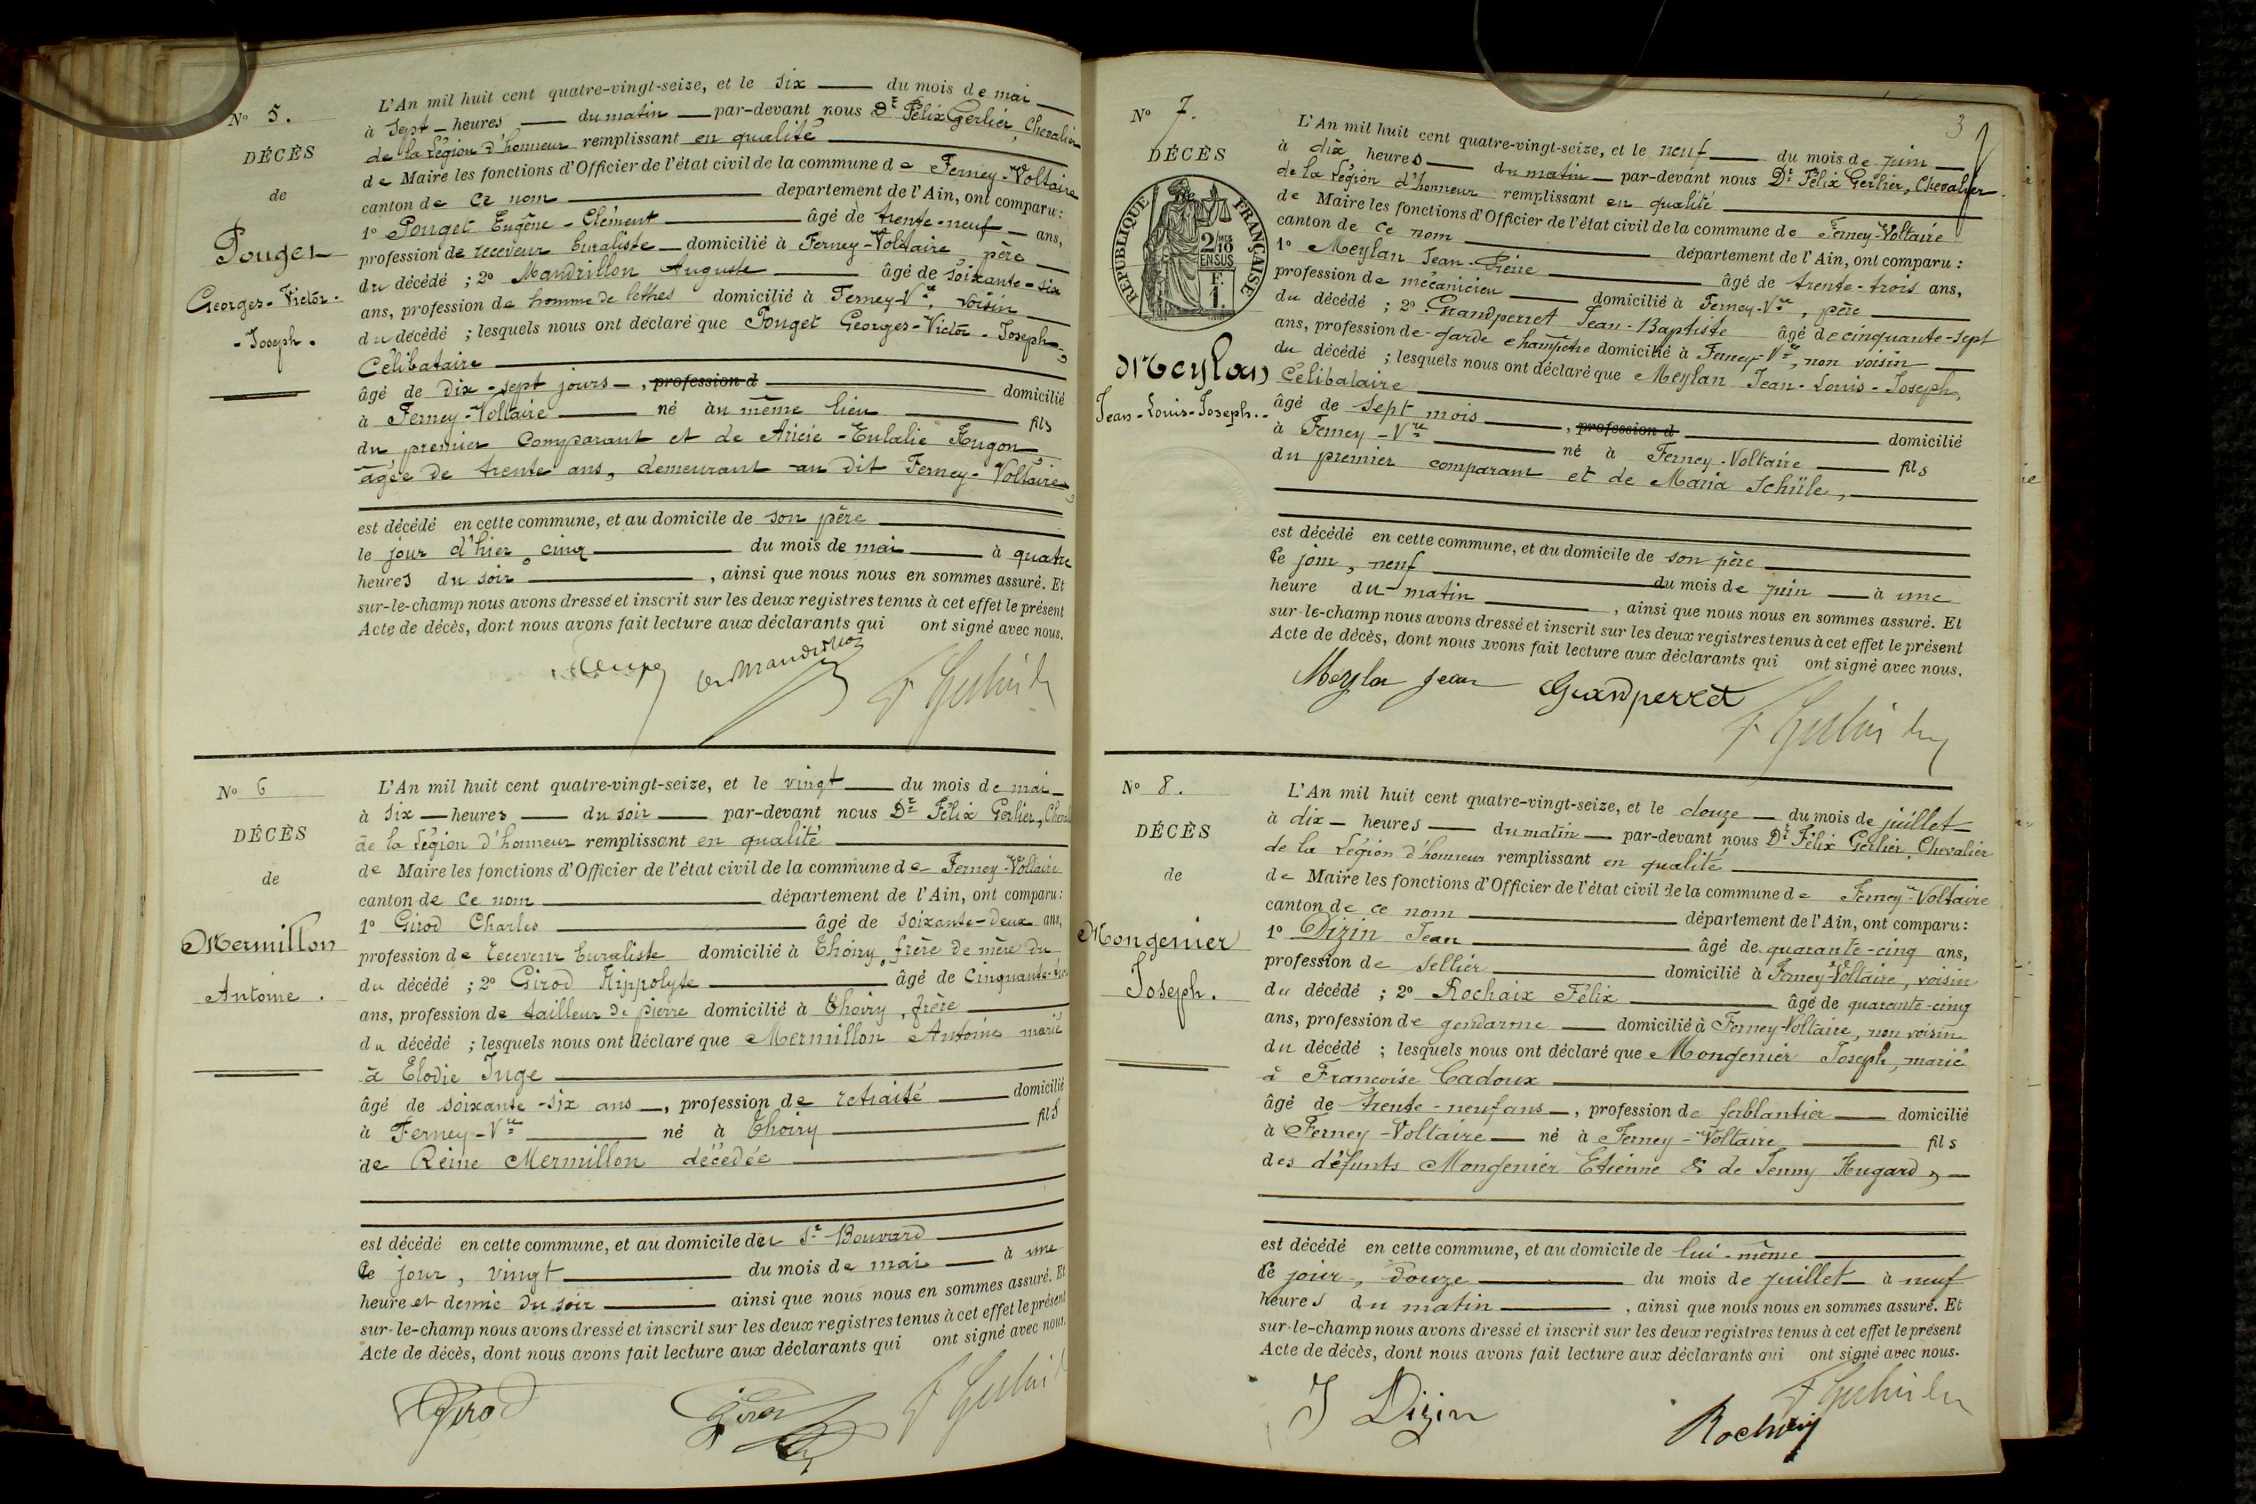 N° 5.
DÉCÈS
de
Pouget
Georges-Victor-
-Joseph.
L'An mil huit cent quatre-vingt-seize, et le six du mois de mai
à sept heures du matin par-devant nous Dr Félix Gerlier, Chevalier
de la Légion d'honneur remplissant en qualité
de Maire les fonctions d'Officier de l'état civil de la commune de Ferney-Voltaire
canton de ce nom département de l'Ain, ont comparu :
1° Pouget Eugène-Clément âgé de trente-neuf ans,
profession de receveur buraliste domicilié à Ferney-Voltaire père
du décédé ; 2° Mandrillon Auguste âgé de soixante-six
ans, profession de homme de lettres domicilié à Ferney-Vre, voisin
du décédé ; lesquels nous ont déclaré que Pouget Georges-Victor-Joseph,
Célibataire
âgé de dix-sept jours, profession d domicilié
à Ferney-Voltaire né au même lieu fils
du premier comparant et de Aricie-Eulalie Hugon
âgée de trente ans, demeurant au dit Ferney-Voltaire,
est décédé en cette commune, et au domicile de son père
le jour d'hier cinq du mois de mai à quatre
heures du soir, ainsi que nous nous en sommes assuré. Et
sur-le-champ nous avons dressé et inscrit sur les deux registres tenus à cet effet le présent
Acte de décès, dont nous avons fait lecture aux déclarants qui ont signé avec nous.
Mandrillon
N° 6
DÉCÈS
de
Mermillon
Antoine.
L'An mil huit cent quatre-vingt-seize, et le vingt du mois de mai
à six heures du soir par-devant nous Dr Félix Gerlier, Cheval
de la Légion d'honneur remplissant en qualité
de Maire les fonctions d'Officier de l'état civil de la commune de Ferney-Voltaire
canton de ce nom département de l'Ain, ont comparu :
1° Girod Charles âgé de soixante-deux ans,
profession de receveur buraliste domicilié à Thoiry, frère de mère du
du décédé ; 2° Girod Hippolyte âgé de cinquante-
ans, profession de tailleur de pierre domicilié à Thoiry, frère
du décédé ; lesquels nous ont déclaré que Mermillon Antoine marié
à Elodie Juge
âgé de soixante-six ans, profession de retraité domicilié
à Ferney-Vre né à Thoiry fils
de Reine Mermillon décédée
est décédé en cette commune, et au domicile de Sr Bouvard
Ce jour, vingt du mois de mai à une
heure et demie du soir ainsi que nous nous en sommes assuré. Et
sur-le-champ nous avons dressé et inscrit sur les deux registres tenus à cet effet le présent
Acte de décès, dont nous avons fait lecture aux déclarants qui ont signé avec nous.
Girod
3
N° 7.
DÉCÈS
RÉPUBLIQUE FRANÇAISE
2/10 EN SUS
F.
1.
Meylan
Jean-Louis-Joseph.
L'An mil huit cent quatre-vingt-seize, et le neuf du mois de juin
à dix heures du matin par-devant nous Dr Félix Gerlier, Chevalier
de la Légion d'honneur remplissant en qualité
de Maire les fonctions d'Officier de l'état civil de la commune de Ferney-Voltaire
canton de ce nom département de l'Ain, ont comparu :
1° Meylan Jean-Pierre âgé de trente-trois ans,
profession de mécanicien domicilié à Ferney-Vre, père
du décédé ; 2° Grandperret Jean-Baptiste âgé de cinquante-sept
ans, profession de garde champêtre domicilié à Ferney-Vre, non voisin
du décédé ; lesquels nous ont déclaré que Meylan Jean-Louis-Joseph,
Célibataire
âgé de sept mois, profession d domicilié
à Ferney-Vre né à Ferney-Voltaire fils
du premier comparant et de Maria Schüle,
est décédé en cette commune, et au domicile de son père
Ce jour, neuf du mois de juin à une
heure du matin, ainsi que nous nous en sommes assuré. Et
sur-le-champ nous avons dressé et inscrit sur les deux registres tenus à cet effet le présent
Acte de décès, dont nous avons fait lecture aux déclarants qui ont signé avec nous.
Meylan Jean Grandperret
N° 8.
DÉCÈS
de
Mongenier
Joseph.
L'An mil huit cent quatre-vingt-seize, et le douze du mois de juillet
à dix heures du matin par-devant nous Dr Félix Gerlier, Chevalier
de la Légion d'honneur remplissant en qualité
de Maire les fonctions d'Officier de l'état civil de la commune de Ferney-Voltaire
canton de ce nom département de l'Ain, ont comparu :
1° Dizin Jean âgé de quarante-cinq ans,
profession de sellier domicilié à Ferney-Voltaire, voisin
du décédé ; 2° Rochaix Félix âgé de quarante-cinq
ans, profession de gendarme domicilié à Ferney-Voltaire, non voisin
du décédé ; lesquels nous ont déclaré que Mongenier Joseph, marié
à Francoise Cadoux
âgé de trente-neuf ans, profession de ferblantier domicilié
à Ferney-Voltaire né à Ferney-Voltaire fils
des défunts Mongenier Etienne & de Jenny Hugard,
est décédé en cette commune, et au domicile de lui-même
Ce jour, douze du mois de juillet à neuf
heures du matin, ainsi que nous nous en sommes assuré. Et
sur-le-champ nous avons dressé et inscrit sur les deux registres tenus à cet effet le présent
Acte de décès, dont nous avons fait lecture aux déclarants qui ont signé avec nous.
J Dizin